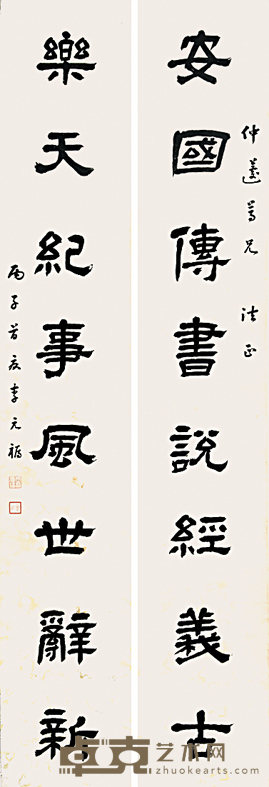 安國傳書說經義古
仲蘧尊兄 法正
樂天紀事風世辭新
丙子首夏李元
卓克艺术网
zhuokearts.com